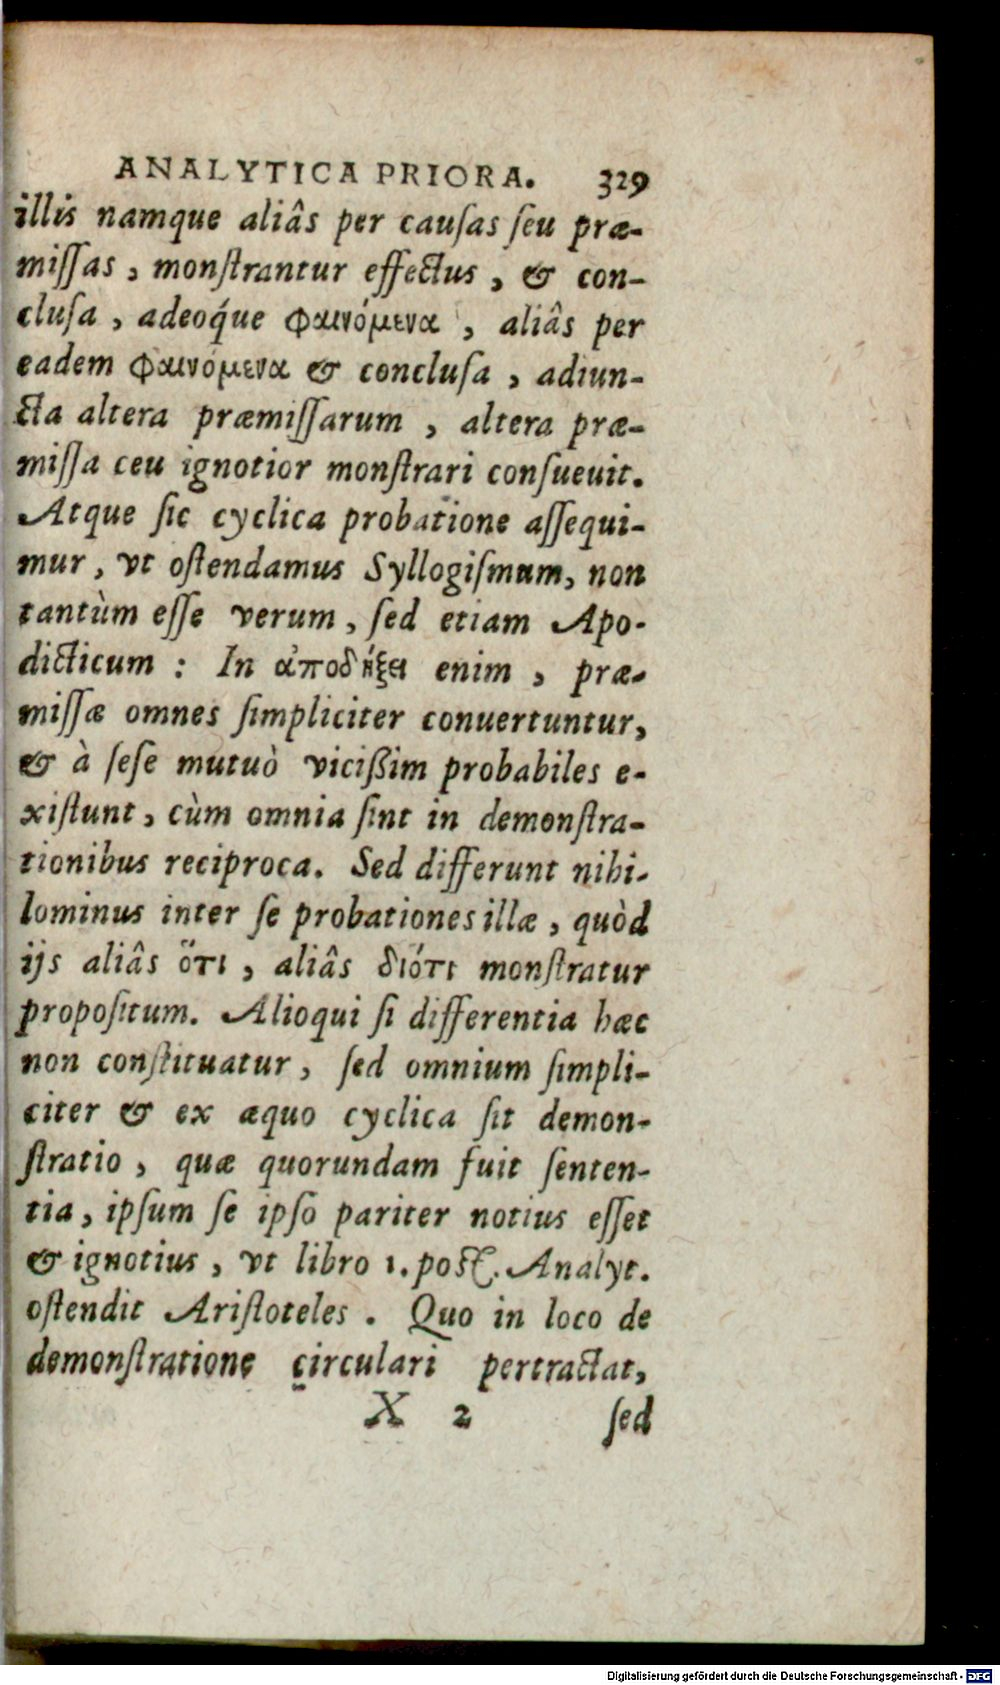 ANALYTICA PRIORA. 329
illis namque aliâs per cauſas ſeu præ-
miſſas, monſtrantur effectus, & con-
cluſa, adeoq́ue φαινόμενα, aliâs per
eadem φαινόμενα & concluſa, adiun-
cta altera præmiſſarum, altera præ-
miſſa ceu ignotior monſtrari conſueuit.
Atque ſic cyclica probatione aſſequi-
mur, vt oſtendamus Syllogiſmum, non
tantùm eſſe verum, ſed etiam Apo-
dicticum : In ἀποδήξει enim, præ-
miſſæ omnes ſimpliciter conuertuntur,
& à ſeſe mutuò vicißim probabiles e-
xiſtunt, cùm omnia ſint in demonſtra-
tionibus reciproca. Sed differunt nihi-
lominus inter ſe probationes illæ, quòd
ijs aliâs ὅτι, aliâs διότι monſtratur
propoſitum. Alioqui ſi differentia hæc
non conſtituatur, ſed omnium ſimpli-
citer & ex æquo cyclica ſit demon-
ſtratio, quæ quorundam fuit ſenten-
tia, ipſum ſe ipſo pariter notius eſſet
& ignotius, vt libro 1. poſt. Analyt.
oſtendit Ariſtoteles. Quo in loco de
demonſtratione circulari pertractat,
X 2 ſed
Digitalisierung gefördert durch die Deutsche Forschungsgemeinschaft - DFG